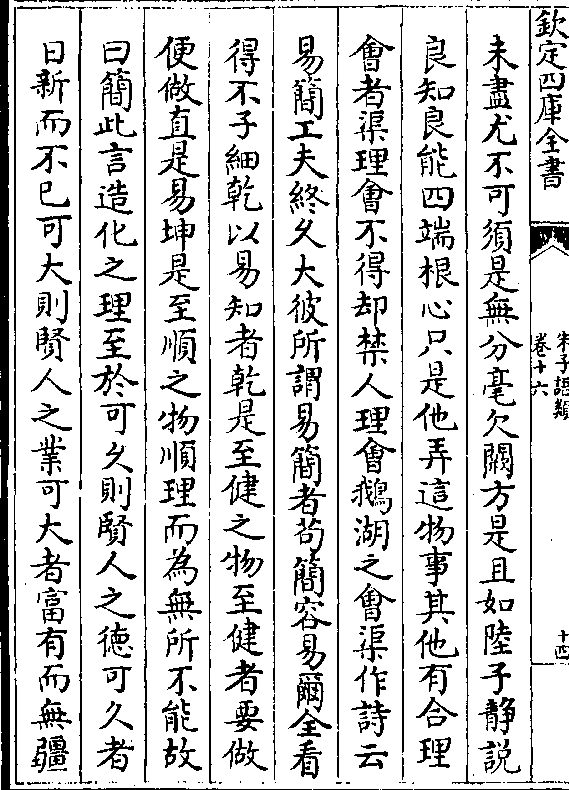 欽定四庫全書
朱子語類
卷十六
十四
未盡尤不可須是無分毫欠闕方是且如陸子静說
良知良能四端根心只是他弄這物事其他有合理
㑹者渠理㑹不得却禁人理㑹鵝湖之㑹渠作詩云
易簡工夫終久大彼所謂易簡者茍簡容易爾全看
得不子細乾以易知者乾是至健之物至健者要做
便做直是易坤是至順之物順理而為無所不能故
曰簡此言造化之理至於可久則賢人之德可久者
日新而不已可大則賢人之業可大者富有而無疆